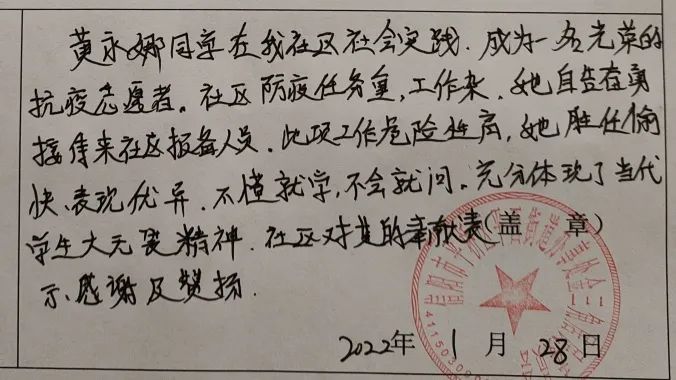 黄永娜同学在我社区社会实践．成为一名光荣的
抗疫志愿者。社区防疫任务重，工作杂．她自告奋勇
接待来社区报备人员．此项工作危险性高，她胜任愉
快、表现优异．不懂就学，不会就问。充分体现了当代
学生大无畏精神．社区对其的奉献表(盖 章)
示感谢及赞扬．
2022年 1 月 28日